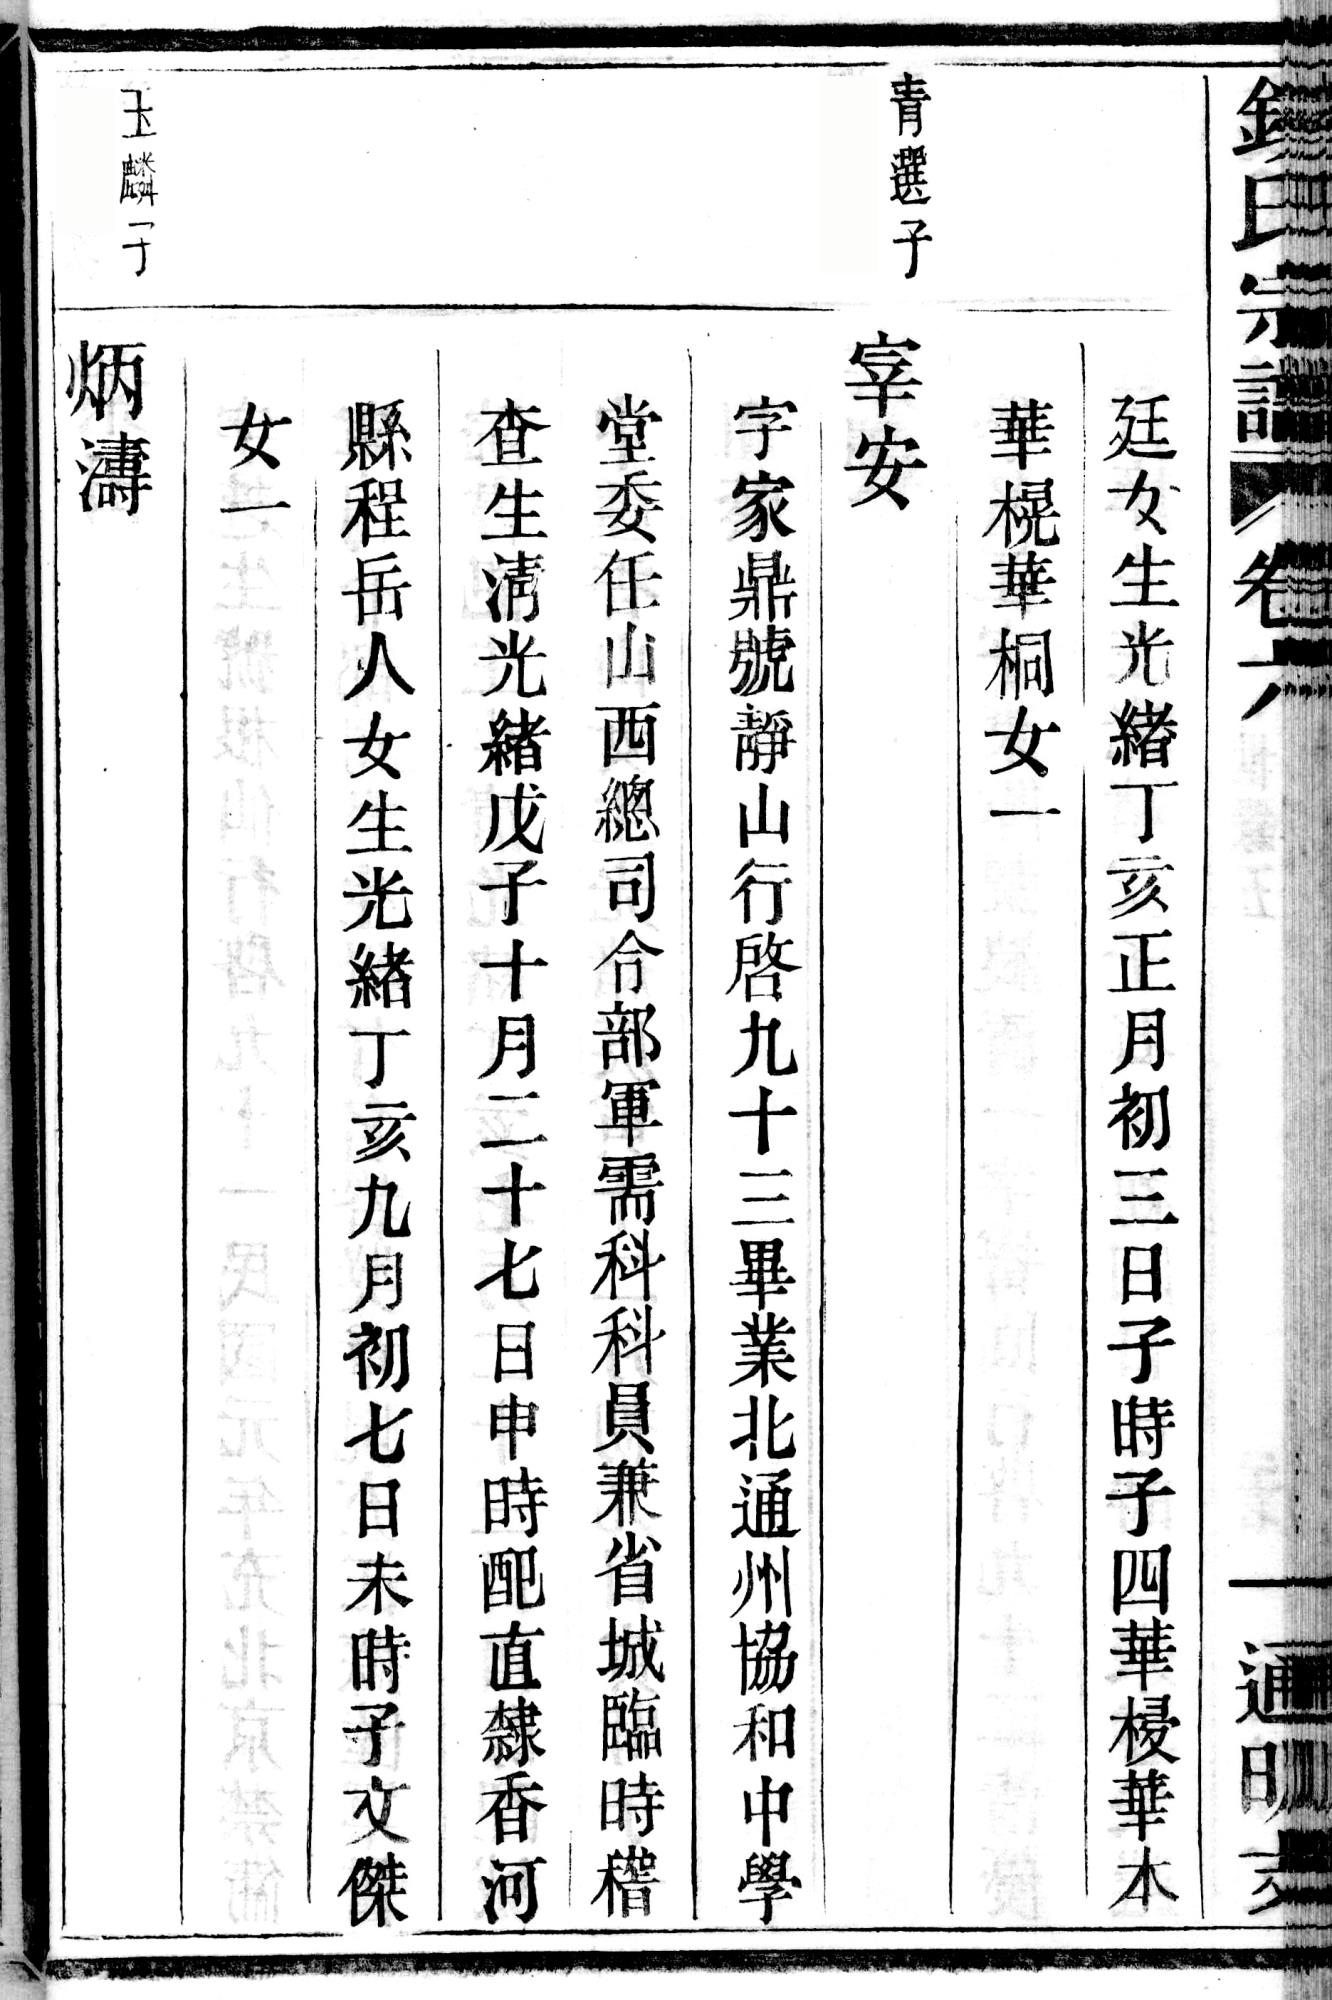 氏宗譜 卷六 通明
廷女生光緒丁亥正月初三日子時子四華梫華木
華榥華桐女一
青選子
宰安
字家鼎號靜山行啓九十三畢業北通州協和中學
堂委任山西總司令部軍需科科員兼省城臨時稽
查生清光緒戊子十月二十七日申時配直隸香河
縣程岳人女生光緒丁亥九月初七日未時子文傑
女一
玉麟子
炳濤